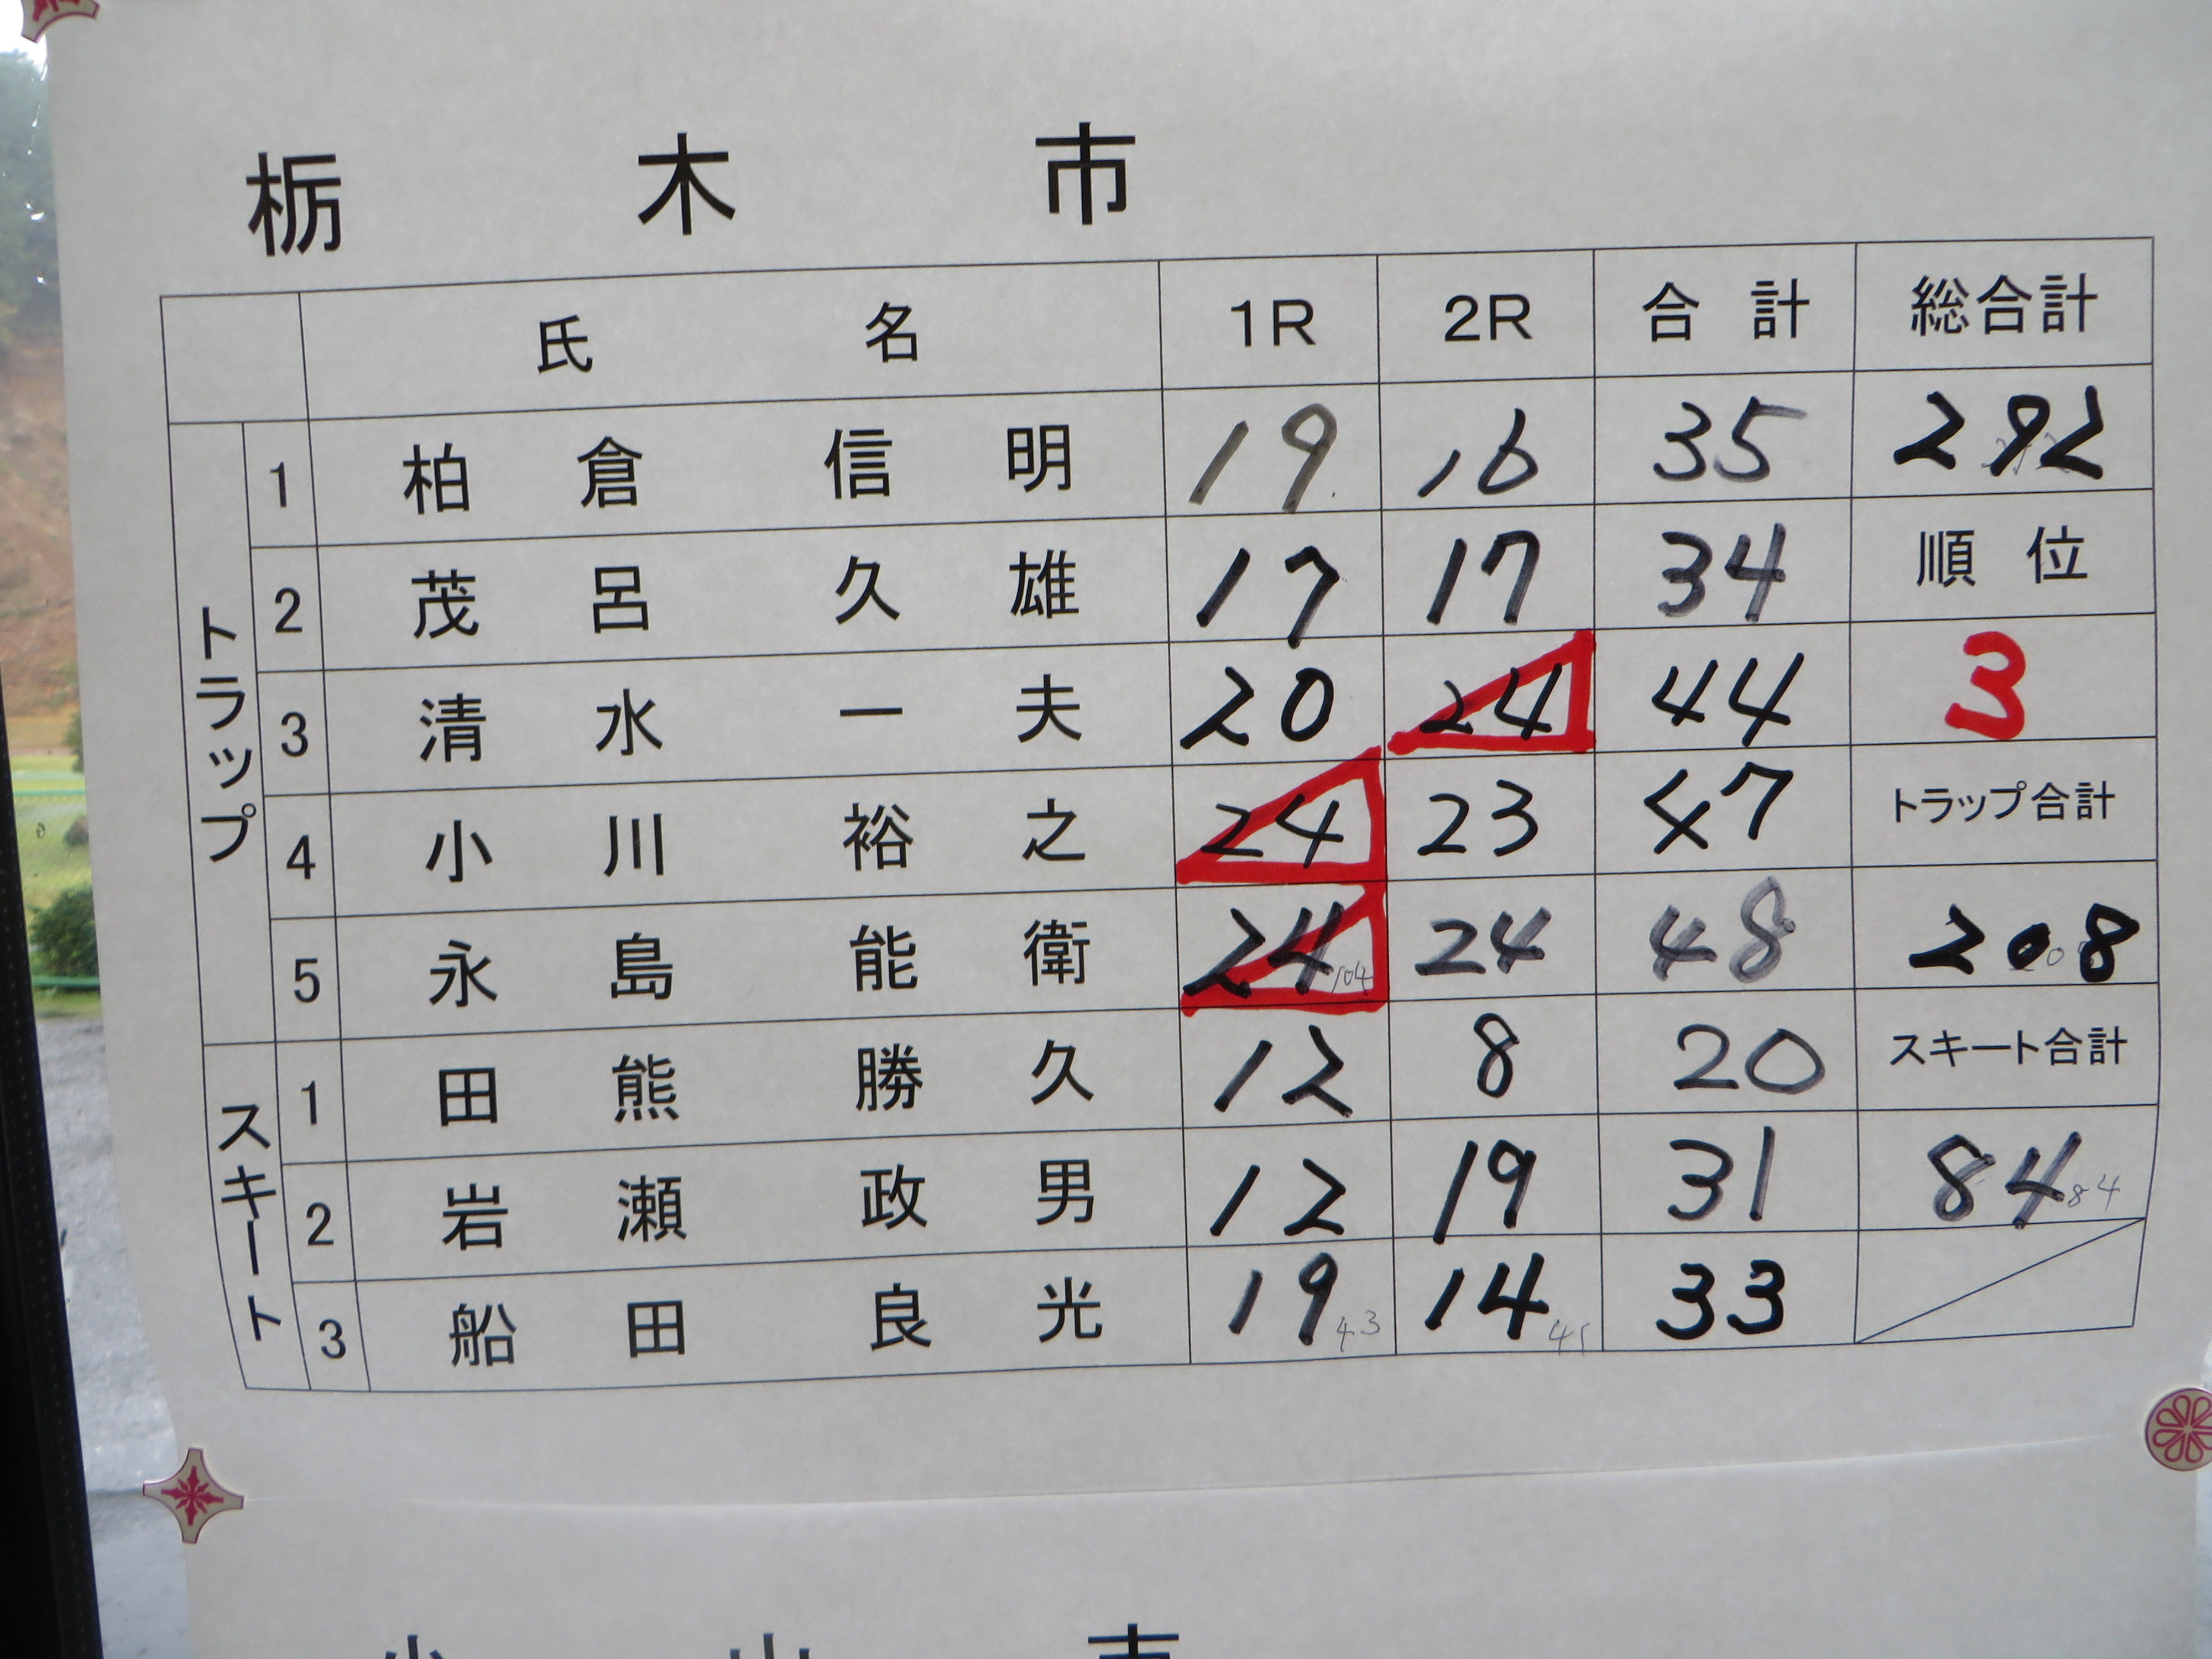 栃木市
氏名 1R 2R 合計 総合計
トラップ
1 柏倉信明 19 16 35 292
2 茂呂久雄 17 17 34 順位
3 清水一夫 20 24 44 3
4 小川裕之 24 23 47 トラップ合計
5 永島能衛 24 104 24 48 208
スキート
1 田熊勝久 12 8 20 スキート合計
2 岩瀬政男 12 19 31 84 84
3 船田良光 19 43 14 41 33
小山市